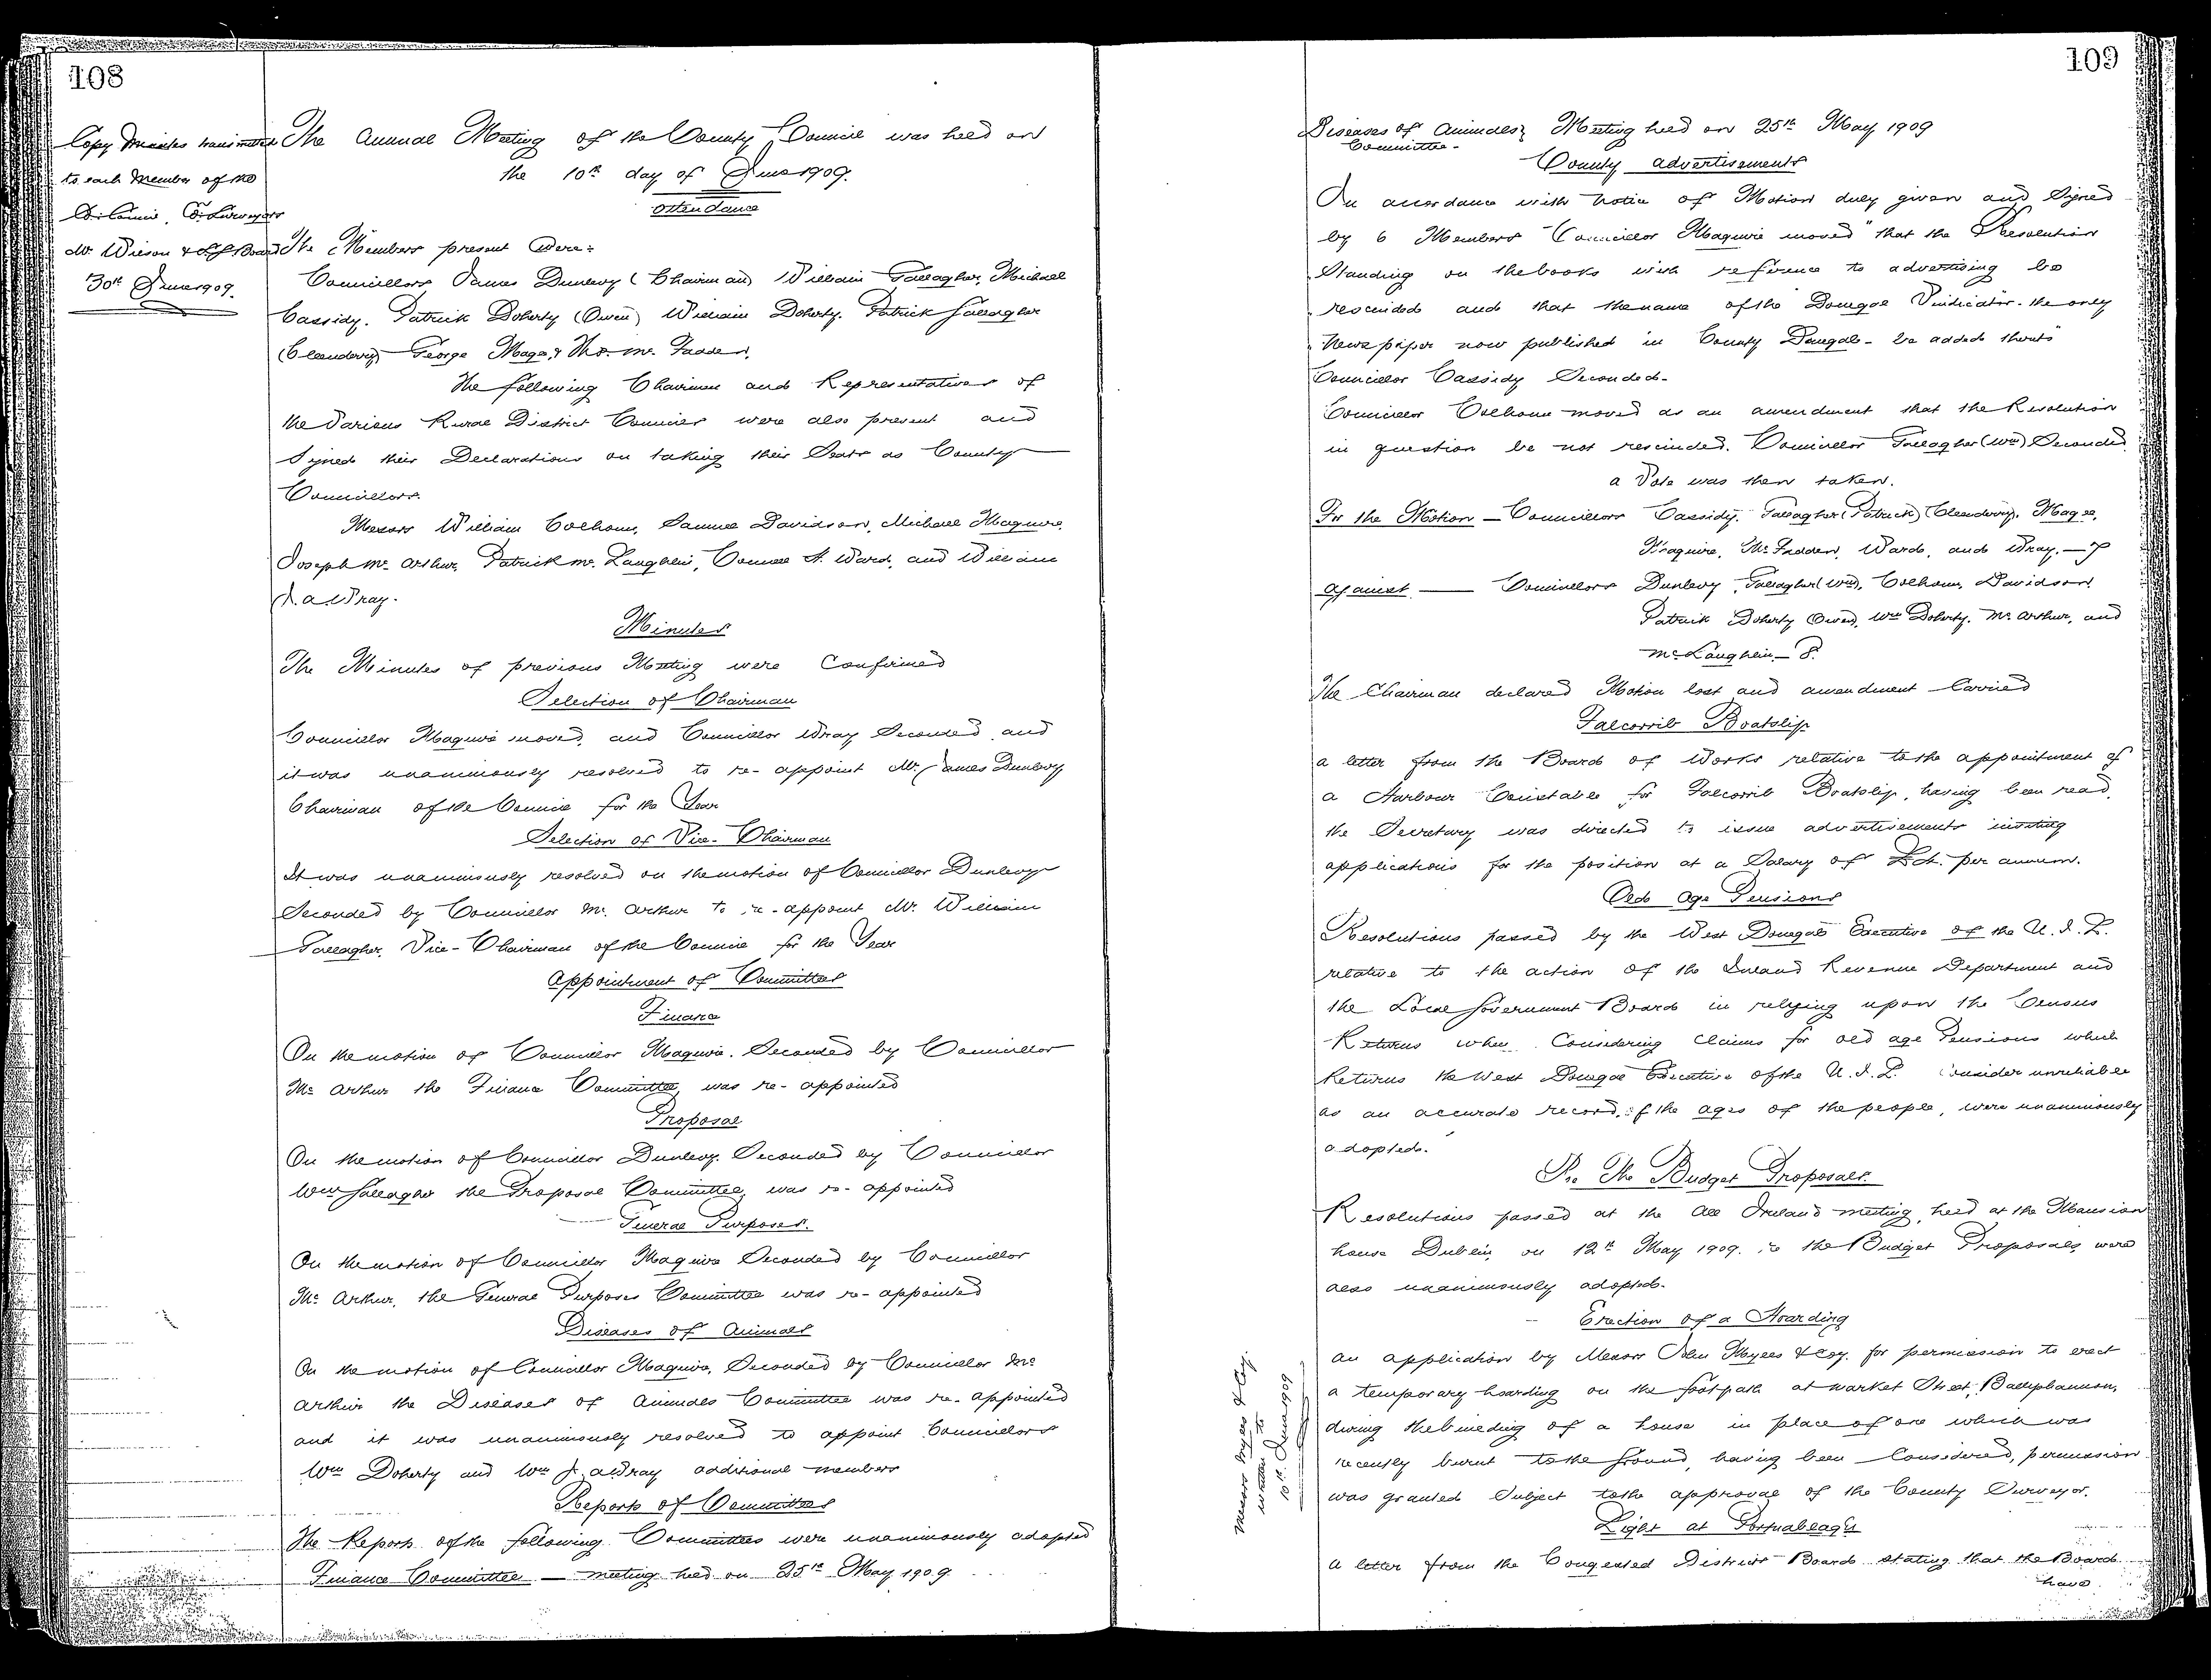 108
Copy Minutes transmitted
to each Member of the
Co. Council, Co. Surveyors
Mr. Wilson & L.G. Board
30th June 1909.
The Annual Meeting of the County Council was held on
the 10th day of June 1909.
Attendance
The Members present were:
Councillors James Dunlevy (Chairman) William Gallagher, Michael
Cassidy. Patrick Doherty (Owen) William Doherty. Patrick Gallagher
(Cleendowey) George Magee, & Mc Fadden.
The following Chairmen and Representatives of
the Various Rural District Councils were also present and
Signed their Declarations on taking their Seats as County
Councillors.
Messrs William Colhoun, Samuel Davidson, Michael Maguire,
Joseph Mc Arthur, Patrick Mc Laughlin, Connell A. Ward, and William
A. Wray.
Minutes
The Minutes of previous Meeting were Confirmed
Selection of Chairman
Councillor Maguire moved, and Councillor Wray Seconded and
it was unanimously resolved to re-appoint Mr. James Dunlevy
Chairman of the Council for the Year
Selection of Vice-Chairman
It was unanimously resolved on the motion of Councillor Dunlevy
Seconded by Councillor Mc Arthur to re-appoint Mr. William
Gallagher, Vice-Chairman of the Council for the Year
Appointment of Committees
Finance
On the motion of Councillor Maguire. Seconded by Councillor
Mc Arthur the Finance Committee was re-appointed
Proposal
On the motion of Councillor Dunlevy. Seconded by Councillor
Wm Gallagher the Proposal Committee was re-appointed
General Purposes.
On the motion of Councillor Maguire Seconded by Councillor
Mc Arthur, the General Purposes Committee was re-appointed
Diseases of Animals
On the motion of Councillor Maguire, Seconded by Councillor Mc
Arthur the Diseases of Animals Committee was re-appointed
and it was unanimously resolved to appoint Councillors
Wm Doherty and Wm Wray additional members
Reports of Committees
The Reports of the following Committees were unanimously adopted
Finance Committee — meeting held on 25th May 1909
109
Diseases of Animals } Meeting held on 25th May 1909
Committee -
County Advertisements
In accordance with Notice of Motion duly given and Signed
by 6 Members Councillor Maguire moved "that the Resolution
Standing on the books with reference to advertising be
rescinded and that the name of the Donegal Vindicator - the only
Newspaper now published in County Donegal - be added thereto"
Councillor Cassidy Seconded -
Councillor Colhoun moved as an amendment that the Resolution
in question be not rescinded. Councillor Gallagher (Wm) Seconded.
A Vote was then taken.
For the Motion — Councillors Cassidy. Gallagher (Patrick) (Cleendowey). Magee,
Maguire, Mc Fadden, Ward, and Wray. — 7
Against — Councillors Dunlevy, Gallagher (Wm), Colhoun, Davidson
Patrick Doherty (Owen), Wm Doherty. Mc Arthur, and
Mc Laughlin — 8.
The Chairman declared Motion lost and amendment Carried
Falcorrib Boatslip
A letter from the Board of Works relative to the appointment of
a Harbour Constable for Falcorrib Boatslip, having been read,
the Secretary was directed to issue advertisements inviting
applications for the position at a Salary of per annum.
Old Age Pensions
Resolutions passed by the West Donegal Executive of the U. I. L.
relative to the action of the Inland Revenue Department and
the Local Government Board in relying upon the Census
Returns when Considering Claims for old age Pensions which
Returns the West Donegal Executive of the U. I. L. consider unreliable
as an accurate record of the ages of the people, were unanimously
adopted.
Re The Budget Proposals.
Resolutions passed at the All Ireland meeting, held at the Mansion
house Dublin, on 12th May 1909. re the Budget Proposals, were
also unanimously adopted.
Erection of a Hoarding
An application by Messrs John Myles & Coy. for permission to erect
a temporary hoarding on the footpath at Market Street, Ballyshannon,
during the building of a house in place of one which was
recently burnt to the Ground, having been Considered, permission
was granted Subject to the approval of the County Surveyor.
Messrs Myles & Coy.
written to
10th June 1909
Light at Portnablagh
A letter from the Congested Districts Board stating that the Board
have